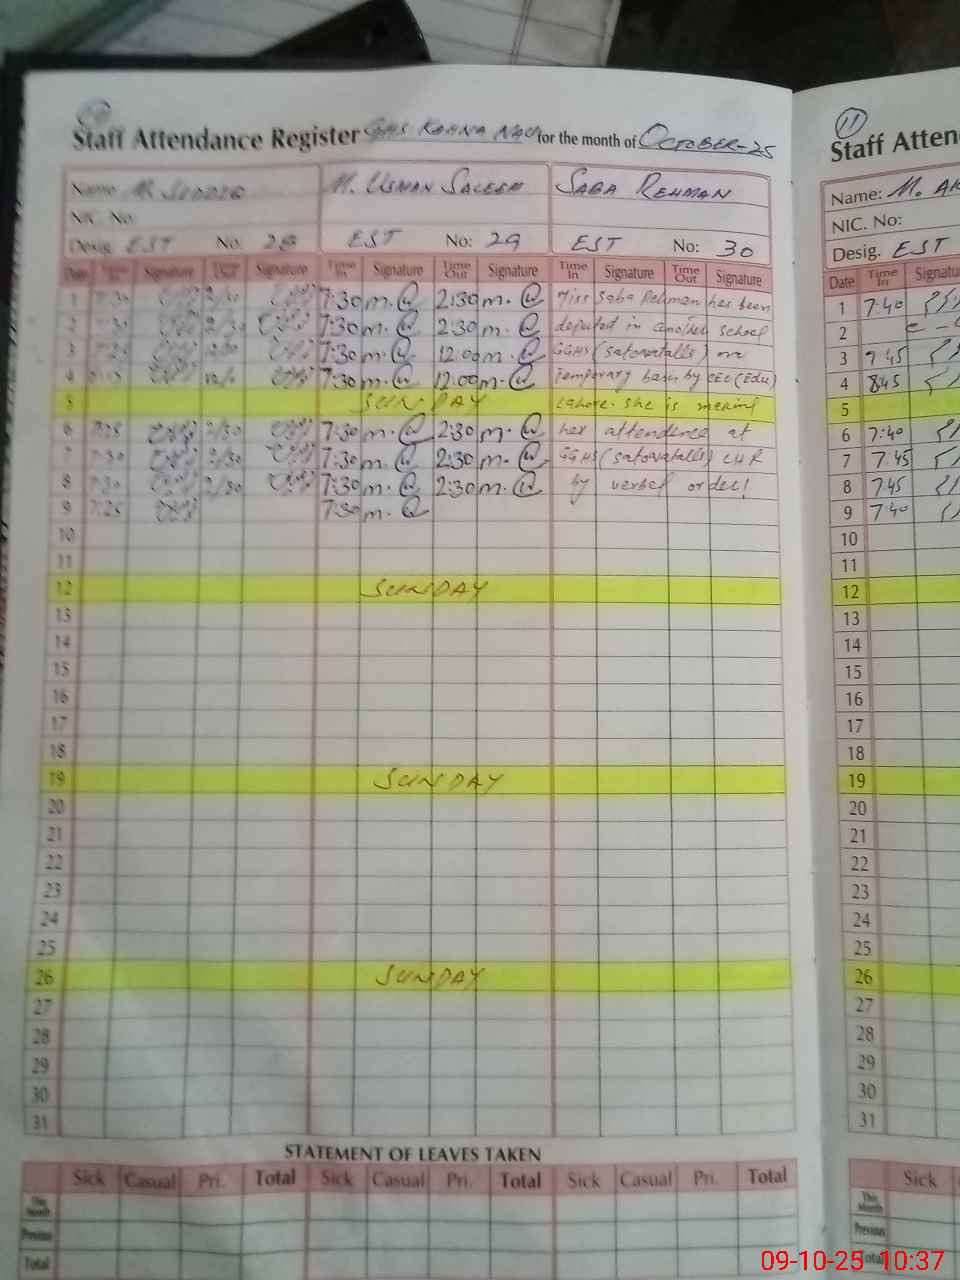 Staff Attendance Register GHS KAHNA NAU for the month of OCTOBER-25
Name M. SIDDIQ M. USMAN SALEEM SABA REHMAN
NIC. No:
Desig. EST No: 28 EST No: 29 EST No: 30
Date Signature Signature Time In Signature Time Out Signature Time In Signature Time Out Signature
1 7:30 2/30 7:30 m. 2:30 m. Miss Saba Rehman has been
2 7:30 2/30 7:30 m. 2:30 m. deputed in another school
3 7:25 7:30 m. 12:00 m. GGHS (satowatalls) on
4 7:30 m. 12:00 m. temporary basis by CEO (Edu)
5 SUNDAY Lahore. she is
6 7:25 2/30 7:30 m. 2:30 m. her attendence at
7 7:30 2/30 7:30 m. 2:30 m. GGHS (satowatalls) LHR
8 7:30 2/30 7:30 m. 2:30 m. by verbel order!
9 7:25 7:30 m.
10
11
12 SUNDAY
13
14
15
16
17
18
19 SUNDAY
20
21
22
23
24
25
26 SUNDAY
27
28
29
30
31
STATEMENT OF LEAVES TAKEN
Sick Casual Pri. Total Sick Casual Pri. Total Sick Casual Pri. Total
This Month
Previous
Total
11
Staff Atten
Name: M. AK
NIC. No:
Desig. EST
Date Time In Signatu
1 7:40
2
3 7 45
4 8 45
5
6 7:40
7 7.45
8 7 45
9 7 40
10
11
12
13
14
15
16
17
18
19
20
21
22
23
24
25
26
27
28
29
30
31
Sick
This Month
Previous
Total
09-10-25 10:37